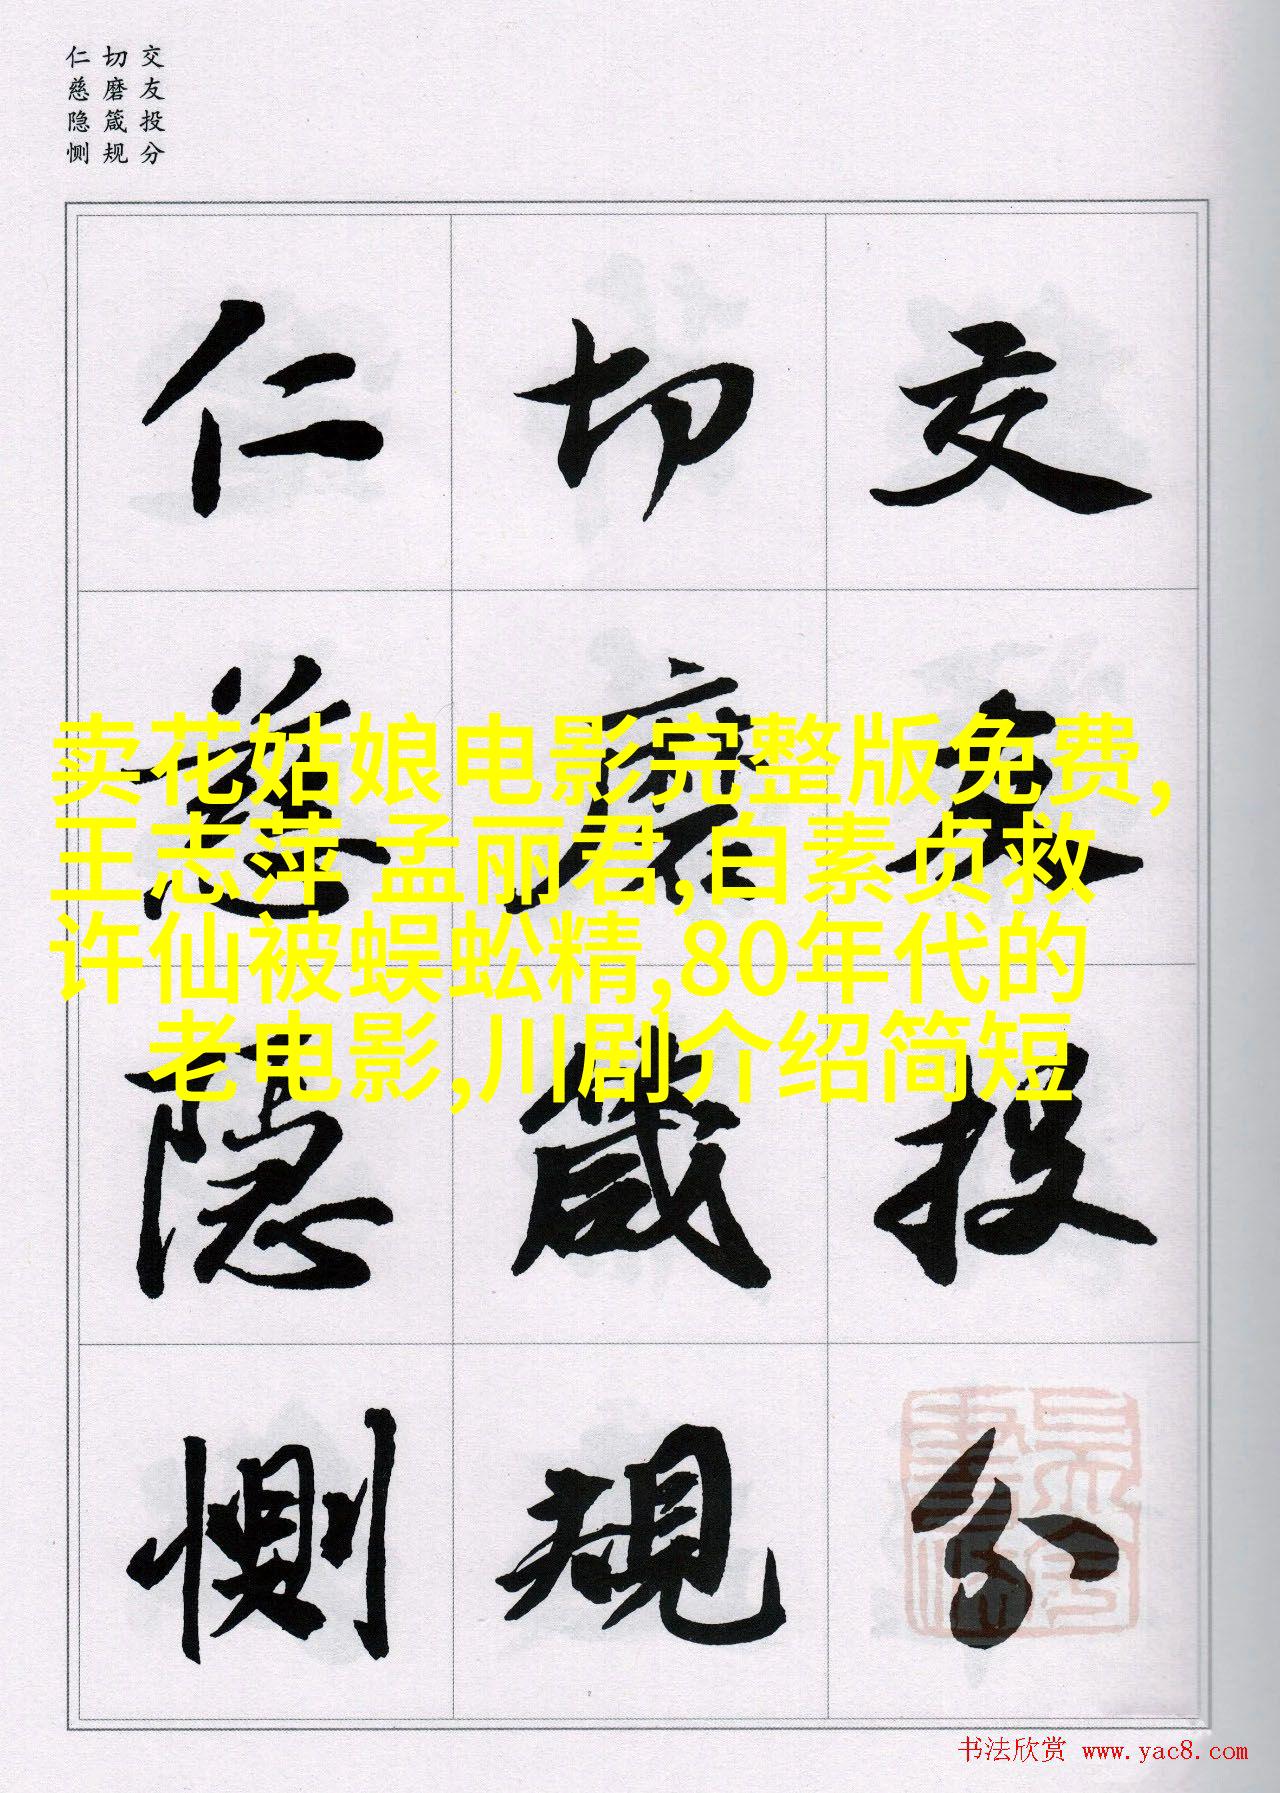 交友投分
切磨箴规
仁慈隐恻
交友投分
切磨箴规
仁慈隐恻
卖花姑娘电影完整版免费,
王志萍 孟丽君,白素贞救
许仙被蜈蚣精,80年代的
老电影,川剧介绍简短
书法欣赏 www.yac8.com